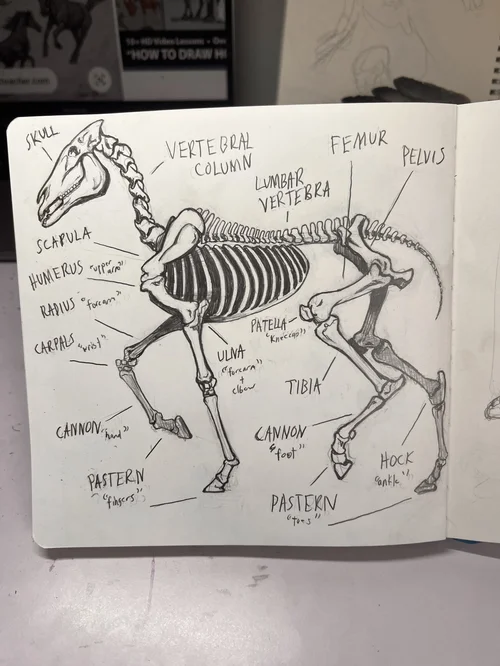 10+ HD Video Lessons
"HOW TO DRAW H
SKULL
VERTEBRAL
COLUMN
FEMUR
PELVIS
LUMBAR
VERTEBRA
SCAPULA
HUMERUS "upper arm"
RADIUS "forearm"
CARPALS "wrist"
PATELLA
"kneecap"
ULNA
"forearm"
+
elbow
TIBIA
CANNON "hand"
CANNON
"foot"
HOCK
"ankle"
PASTERN
"fingers"
PASTERN
"toes"